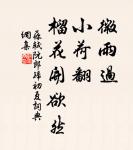 微雨過
小荷翻
榴花開欲然
蘇軾阮郎歸初夏詞典
網集